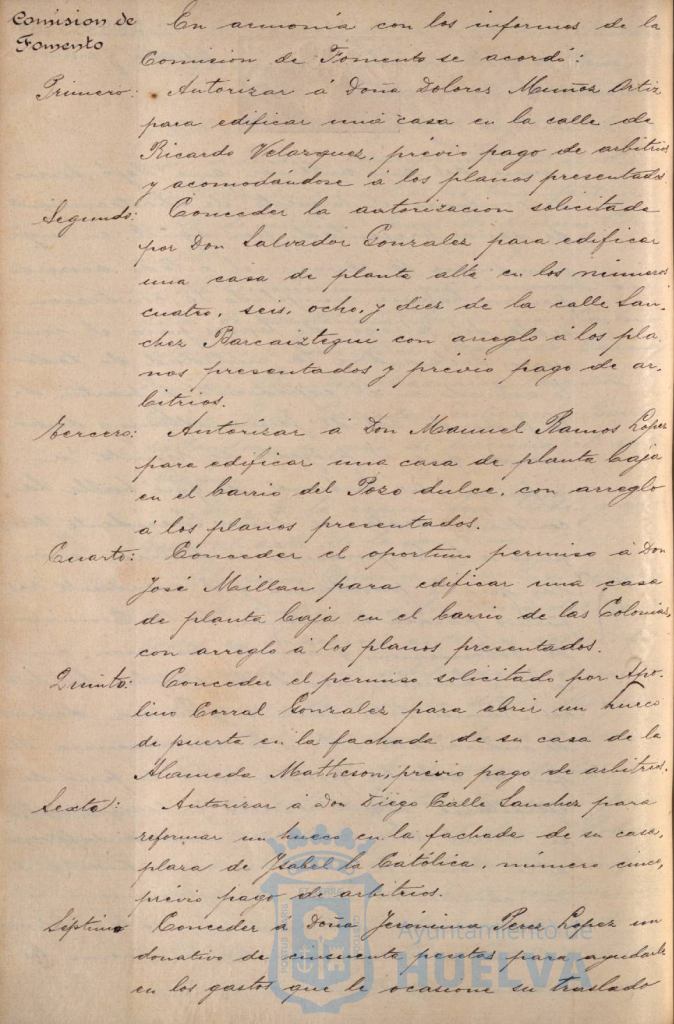 Comision de
Fomento
En armonía con los informes de la
Comision de Fomento se acordó:
Primero: Autorizar á Doña Dolores Muñoz Ortiz
para edificar una casa en la calle de
Ricardo Velazquez, prévio pago de arbitrios
y acomodándose á los planos presentados
Segundo: Conceder la autorizacion solicitada
por Don Salvador Gonzalez para edificar
una casa de planta alta en los números
cuatro, seis, ocho, y diez de la calle San-
chez Barcaiztegui con arreglo á los pla-
nos presentados y prévio pago de ar-
bitrios.
Tercero: Autorizar á Don Manuel Ramos Lopez
para edificar una casa de planta baja
en el barrio del Pozo dulce, con arreglo
á los planos presentados.
Cuarto: Conceder el oportuno permiso á Don
José Maillan para edificar una casa
de planta baja en el barrio de las Colonias,
con arreglo á los planos presentados.
Quinto: Conceder el permiso solicitado por Apo-
lino Corral Gonzalez para abrir un hueco
de puerta en la fachada de su casa de la
Alameda Matheson, prévio pago de arbitrios.
Sexto: Autorizar á Don Diego Calle Sanchez para
reformar un hueco en la fachada de su casa,
plaza de Ysabel la Católica, número cinco,
prévio pago de arbitrios.
Séptimo Conceder á Doña Jerónima Perez Lopez un
donativo de cincuenta pesetas para ayudarle
en los gastos que le ocasione su traslado
Ayuntamiento de
HUELVA